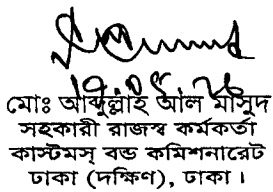 মোঃ আব্দুল্লাহ আল মাসুদ
সহকারী রাজস্ব কর্মকর্তা
কাস্টমস্ বন্ড কমিশনারেট
ঢাকা (দক্ষিণ), ঢাকা।